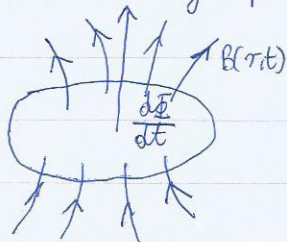 B(r,t)
dΦ
dt